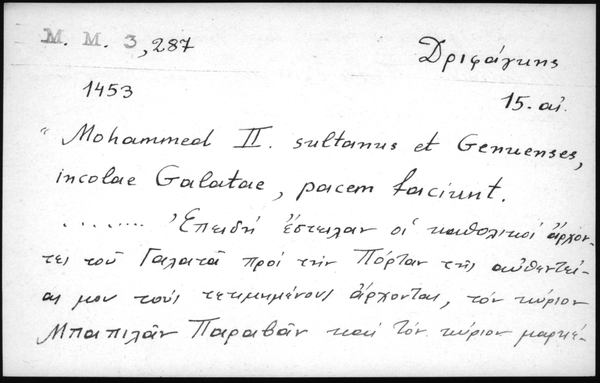 M. M. 3, 287
Δριφάγκης
1453
15. αἰ.
" Mohammed II. sultanus et Genuenses,
incolae Galatae, pacem faciunt.
........ Ἐπειδή ἔστειλαν οἱ καθολικοί ἄρχον-
τες τοῦ Γαλατᾶ πρός τήν Πόρταν τῆς αὐθεντεί-
ας μου τούς τετιμημένους ἄρχοντας, τόν κύριον
Μπαπιλᾶν Παραβᾶν καί τόν κύριον μαρκέ-